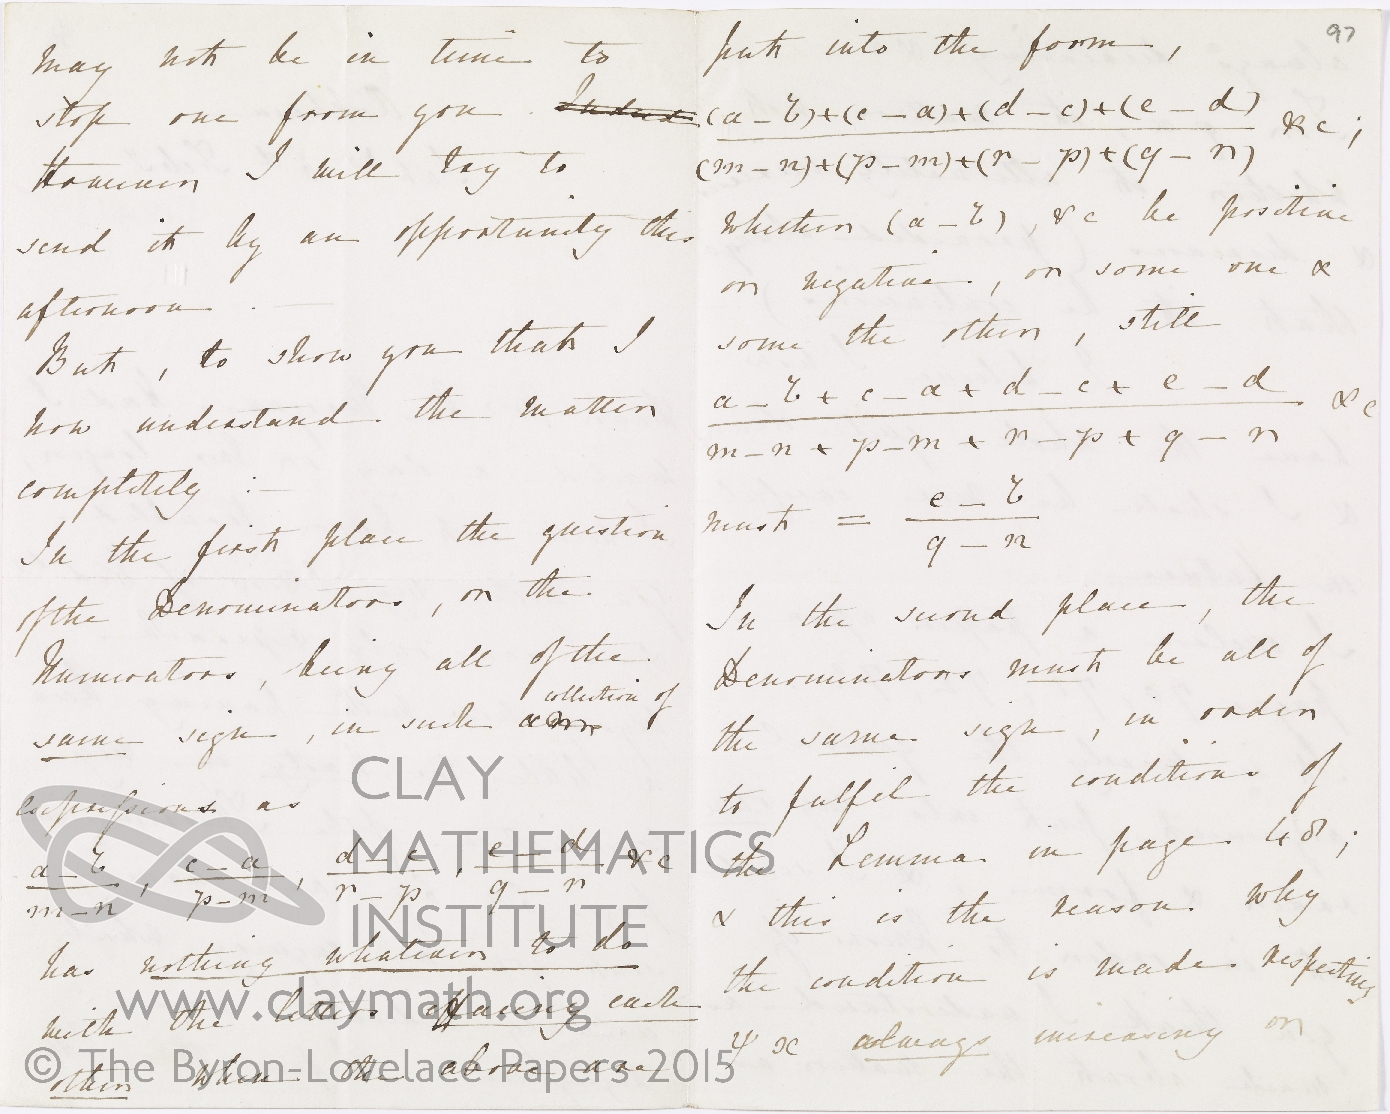 may not be in time to
stop one from you. Indeed
However I will try to
send it by an opportunity this
afternoon.
But, to show you that I
now understand the matter
completely :—
In the first place the question
of the Denominators, or the
Numerators, being all of the
collection of
same sign, in such a
expressions as
a – b / m – n , c – a / p – m , d – c / r – p , e – d / q – r &c
has nothing whatever to do
with the letters effacing each
other when the above are
97
put into the form,
(a – b)+(c – a)+(d – c)+(e – d) / (m – n)+(p – m)+(r – p)+(q – r) &c;
whether (a – b), &c be positive
or negative, or some one &
some the other, still
a – b + c – a + d – c + e – d / m – n + p – m + r – p + q – r &c
must = e – b / q – n
In the second place, the
Denominators must be all of
the same sign, in order
to fulfil the conditions of
the Lemma in page 48;
& this is the reason why
the condition is made respecting
ψx always increasing or
CLAY
MATHEMATICS
INSTITUTE
www.claymath.org
© The Byron-Lovelace Papers 2015